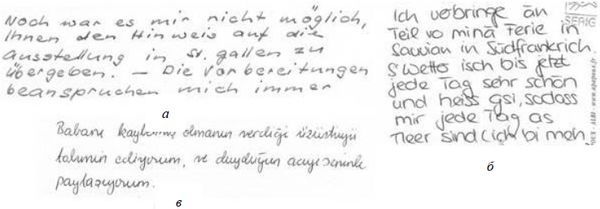 Noch war es mir nicht möglich,
Ihnen den Hinweis auf die
Ausstellung in St. Gallen zu
übergeben. – Die Vorbereitungen
beanspruchen mich immer
а
Babanı kaybetmiş olmanın verdiği üzüntüyü
tahmin ediyorum, ve duyduğun acıyı seninle
paylaşıyorum.
в
Ich verbringe än
Teil vo minä Ferie in
in Südfrankrich.
S'Wetter isch bis jetzt
jede Tag sehr schön
und heiss gsi, sodass
mir jede Tag as
Meer sind (ich bi meh,
б